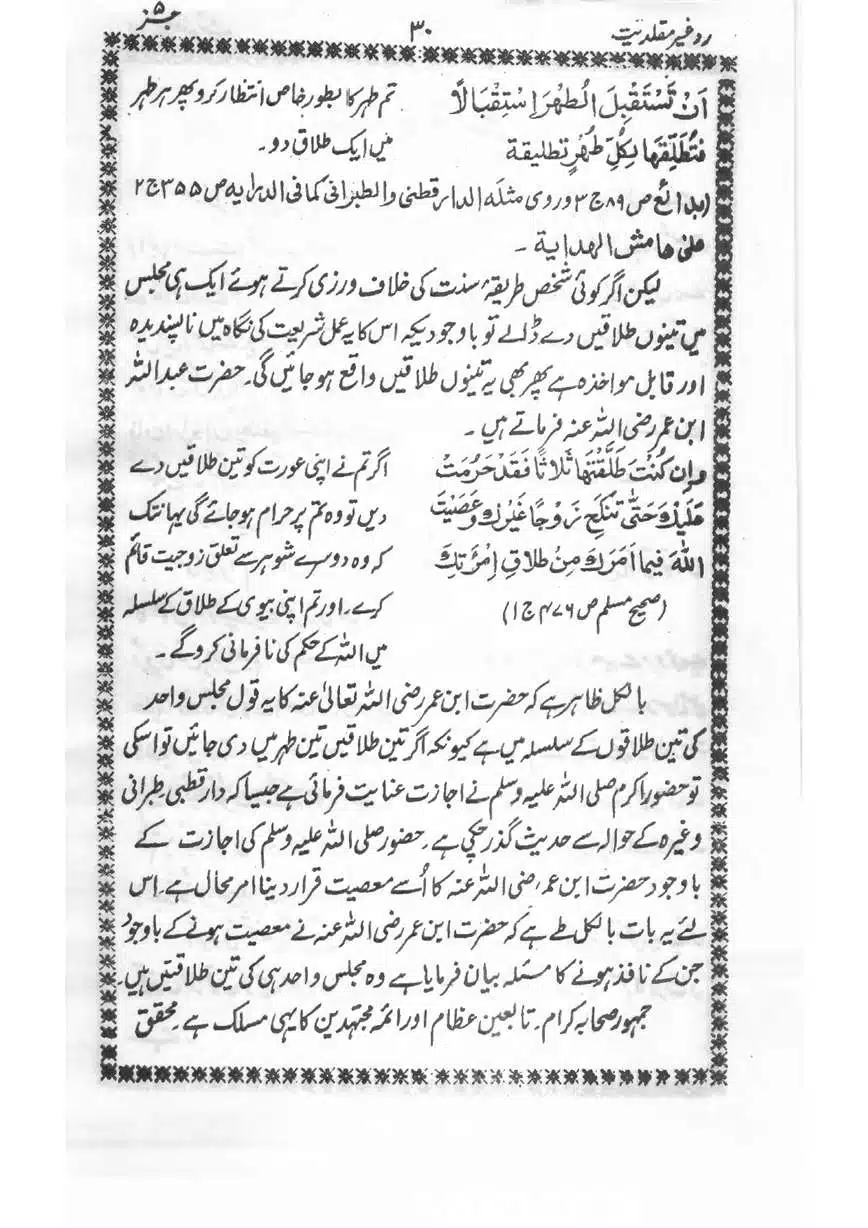 رد غیر مقلدیت ۳۰ جز ۵
اَنْ تَسْتَقْبِلَ الطُّهْرَ اِسْتِقْبَالًا تم طہر کا بطور خاص انتظار کرو پھر ہر طہر
فَتُطَلِّقَهَا لِكُلِّ طُهْرٍ تطليقة میں ایک طلاق دو۔
(بدائع ص ۸۹ ج ۳ وروی مثله الدارقطنی والطبرانی کمافی الدرایه ص ۳۵۵ ج ۲
علیٰ هامش الهدایة ۔
لیکن اگر کوئی شخص طریقۂ سنت کی خلاف ورزی کرتے ہوئے ایک ہی مجلس
میں تینوں طلاقیں دے ڈالے تو باوجودیکہ اس کا یہ عمل شریعت کی نگاہ میں ناپسندیدہ
اور قابل مواخذہ ہے پھر بھی یہ تینوں طلاقیں واقع ہو جائیں گی۔ حضرت عبداللہ
ابن عمر رضی اللہ عنہ فرماتے ہیں۔
وَاِن كُنْتَ طَلَّقْتَهَا ثَلاَثًا فَقَدْ حَرُمَتْ اگر تم نے اپنی عورت کو تین طلاقیں دے
عَلَيْكَ حَتّٰى تَنْكِحَ زَوْجًا غَيْرَكَ وَعَصَيْتَ دیں تو وہ تم پر حرام ہو جائے گی یہانتک
اللهَ فِيمَا اَمَرَكَ مِنْ طَلاَقِ اِمْرَءَتِكَ کہ وہ دوسرے شوہر سے تعلق زوجیت قائم
(صحیح مسلم ص ۴۷۶ ج ۱) کرے۔ اور تم اپنی بیوی کے طلاق کے سلسلہ
میں اللہ کے حکم کی نافرمانی کرو گے۔
بالکل ظاہر ہے کہ حضرت ابن عمر رضی اللہ تعالیٰ عنہ کا یہ قول مجلس واحد
کی تین طلاقوں کے سلسلہ میں ہے کیونکہ اگر تین طلاقیں تین طہر میں دی جائیں تو اسکی
تو حضور اکرم صلی اللہ علیہ وسلم نے اجازت عنایت فرمائی ہے جیسا کہ دار قطنی، طبرانی
وغیرہ کے حوالہ سے حدیث گذر چکی ہے۔ حضور صلی اللہ علیہ وسلم کی اجازت کے
باوجود حضرت ابن عمر رضی اللہ عنہ کا اُسے معصیت قرار دینا امر محال ہے۔ اس
لئے یہ بات بالکل طے ہے کہ حضرت ابن عمر رضی اللہ عنہ نے معصیت ہونے کے باوجود
جن کے نافذ ہونے کا مسئلہ بیان فرمایا ہے وہ مجلس واحد ہی کی تین طلاقیں ہیں۔
جمہور صحابہ کرام، تابعین عظام اور ائمہ مجتہدین کا یہی مسلک ہے۔ محقق